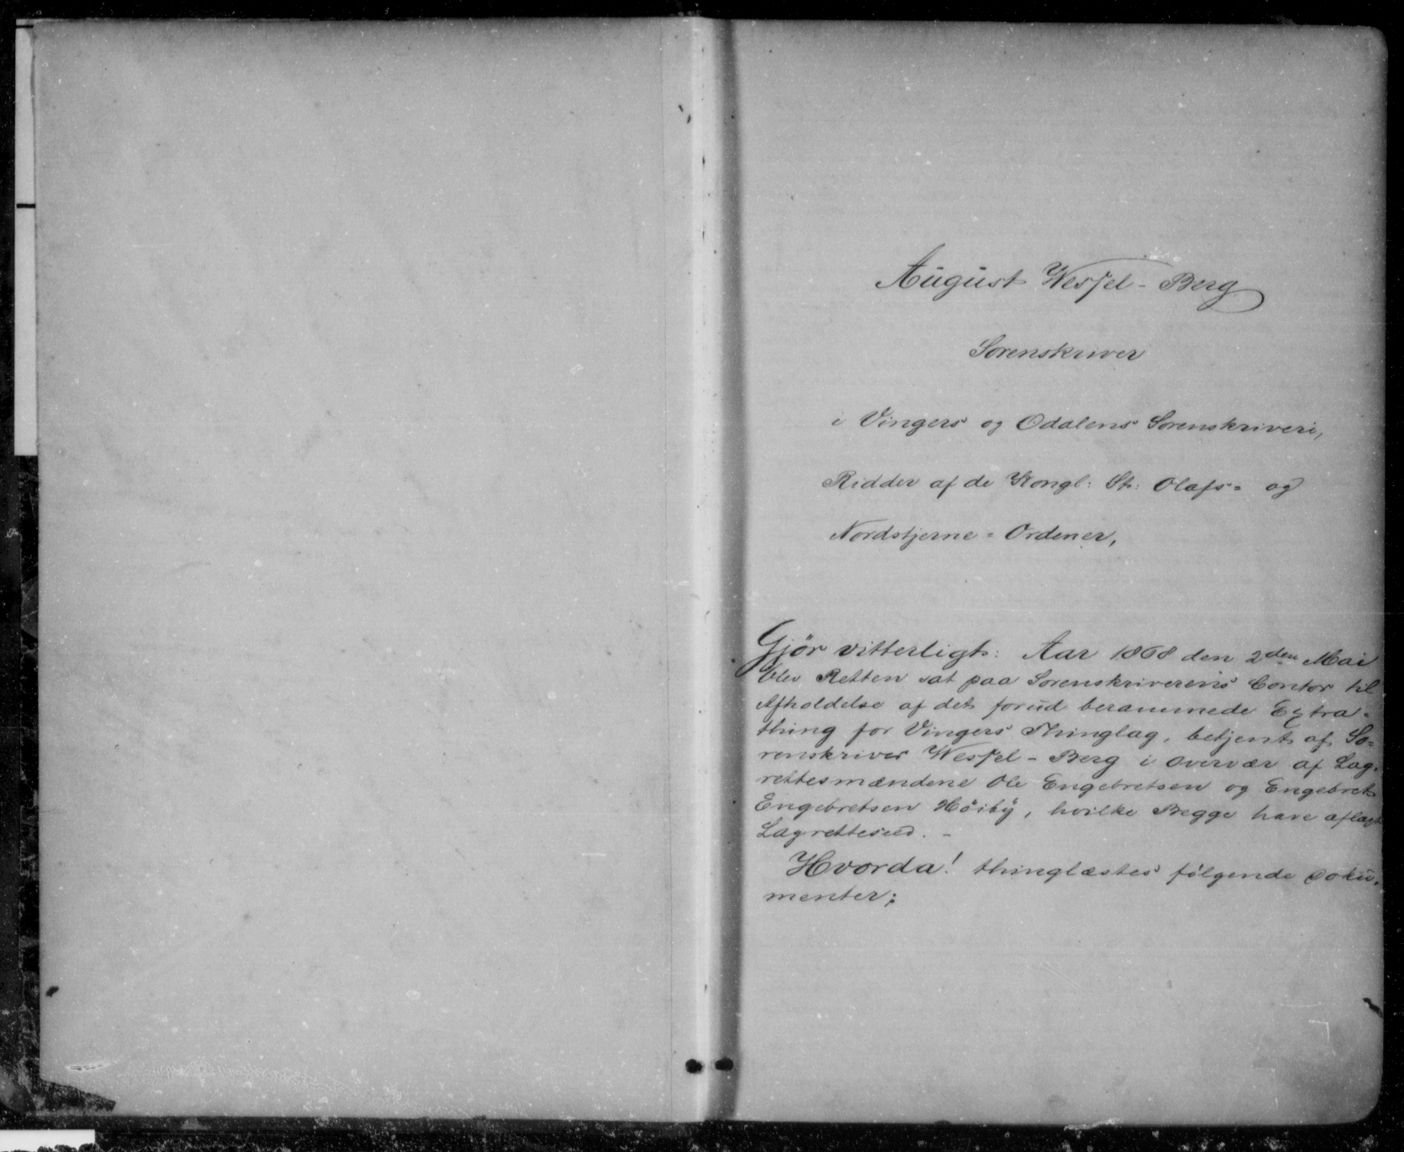 August Wessel-Berg
Sorenskriver
i Vingers og Odalens Sorenskriveri,
Ridder af de Kongl: St: Olafs- og
Nordstjerne-Ordener,
Gjør vitterligt: Aar 1868 den 2den Mai
blev Retten sat paa Sorenskriverens Contor til
Afholdelse af det forud berammede Extra-
thing for Vingers Thinglag, betjent af So-
renskriver Wessel-Berg i overvær af Lag-
rettesmændene Ole Engebretsen og Engebret
Engebretsen Høiby, hvilke Begge have aflagt
Lagretteseed. -
Hvorda! thinglæstes følgende Doku-
menter;